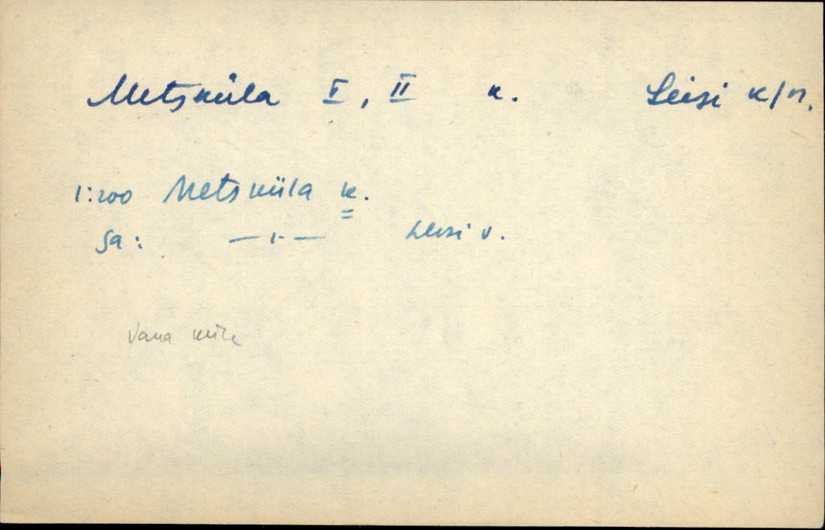 Metsküla I, II k. Leisi k/n.
1:200 Metsküla k.
Sa: —"— Leisi v.
Vana küla